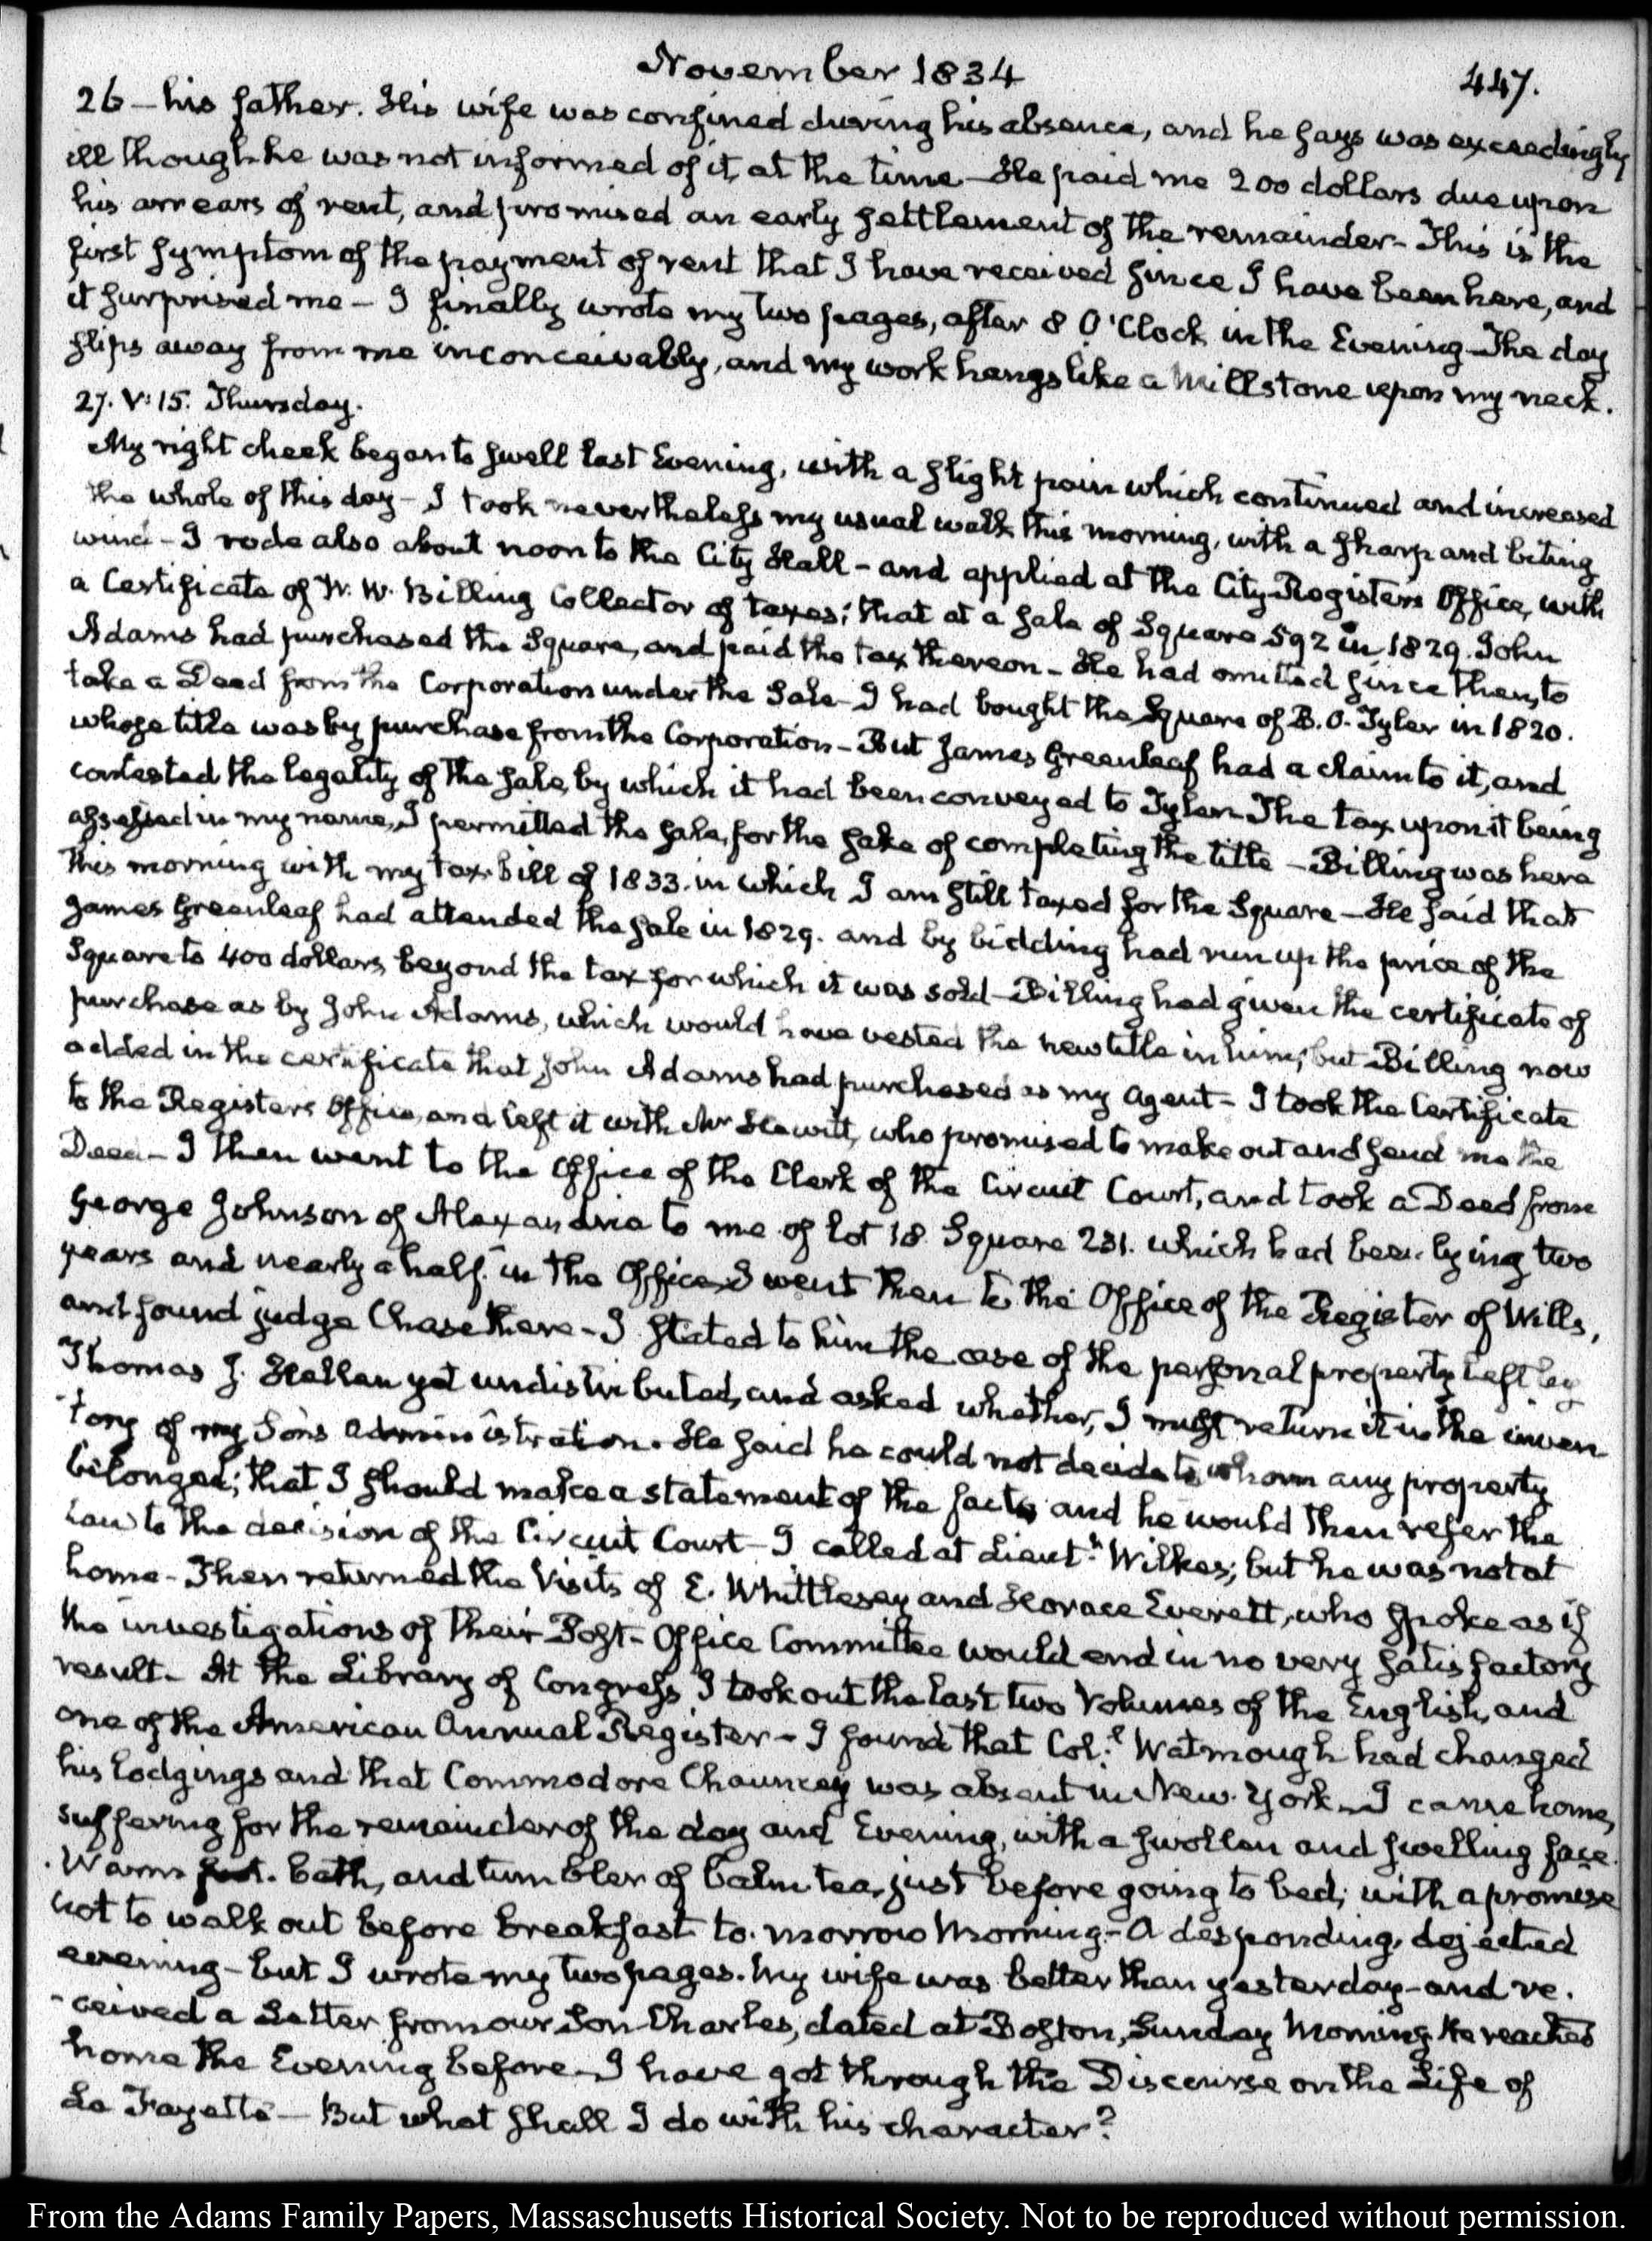 November 1834
447.
26 – his father. His wife was confined during his absence, and he says was exceedingly
ill though he was not informed of it, at the time – He paid me 200 dollars due upon
his arrears of rent, and promised an early settlement of the remainder – This is the
first symptom of the payment of rent that I have received since I have been here, and
it surprised me – I finally wrote my two pages, after 8 O'Clock in the Evening – The day
slips away from me inconceivably, and my work hangs like a Millstone upon my neck.
27. V:15. Thursday.
My right cheek began to swell last Evening, with a slight pain which continued and increased
the whole of this day – I took nevertheless my usual walk this morning, with a sharp and biting
wind – I rode also about noon to the City Hall – and applied at the City Registers Office, with
a Certificate of W. W. Billing Collector of taxes; that at a sale of Square 592 in 1829. John
Adams had purchased the Square, and paid the tax thereon – He had omitted since then, to
take a Deed from the Corporation under the Sale – I had bought the Square of B. O. Tyler in 1820.
whose title was by purchase from the Corporation – But James Greenleaf had a claim to it, and
contested the legality of the sale, by which it had been conveyed to Tyler – The tax upon it being
assessed in my name, I permitted the sale, for the sake of completing the title – Billing was here
this morning with my tax-bill of 1833. in which I am still taxed for the Square – He said that
James Greenleaf had attended the sale in 1829. and by bidding had run up the price of the
Square to 400 dollars beyond the tax for which it was sold – Billing had given the certificate of
purchase as by John Adams, which would have vested the new title in him; but Billing now
added in the certificate that John Adams had purchased as my agent – I took the Certificate
to the Registers Office, and left it with Mr Hewitt, who promised to make out and send me the
Deed – I then went to the Office of the Clerk of the Circuit Court, and took a Deed from
George Johnson of Alexandria to me of lot 18 Square 231. which had been lying two
years and nearly a half in the Office – I went then to the Office of the Register of Wills,
and found judge Chase there – I stated to him the case of the personal property left by
Thomas J. Hellen yet undistributed, and asked whether, I must return it in the inven
-tory of my Son's administration. He said he could not decide to whom any property
belonged; that I should make a statement of the facts and he would then refer the
case to the decision of the Circuit Court – I called at Lieut.t Wilkes; but he was not at
home – Then returned the Visits of E. Whittlesey and Horace Everett, who spoke as if
the investigations of their Post-Office Committee would end in no very satisfactory
result – At the Library of Congress I took out the last two Volumes of the English, and
one of the American Annual Register – I found that Col.l Watmough had changed
his lodgings and that Commodore Chauncey was absent in New-York – I came home,
suffering for the remainder of the day and Evening, with a swollen and swelling face.
Warm foot-bath, and tumbler of balm tea, just before going to bed; with a promise
not to walk out before breakfast to-morrow Morning – A desponding, dejected
evening – but I wrote my two pages. My wife was better than yesterday – and re-
-ceived a Letter from our Son Charles, dated at Boston, Sunday Morning. He reached
home the Evening before – I have got through the Discourse on the Life of
La Fayette – But what shall I do with his character?
From the Adams Family Papers, Massaschusetts Historical Society. Not to be reproduced without permission.